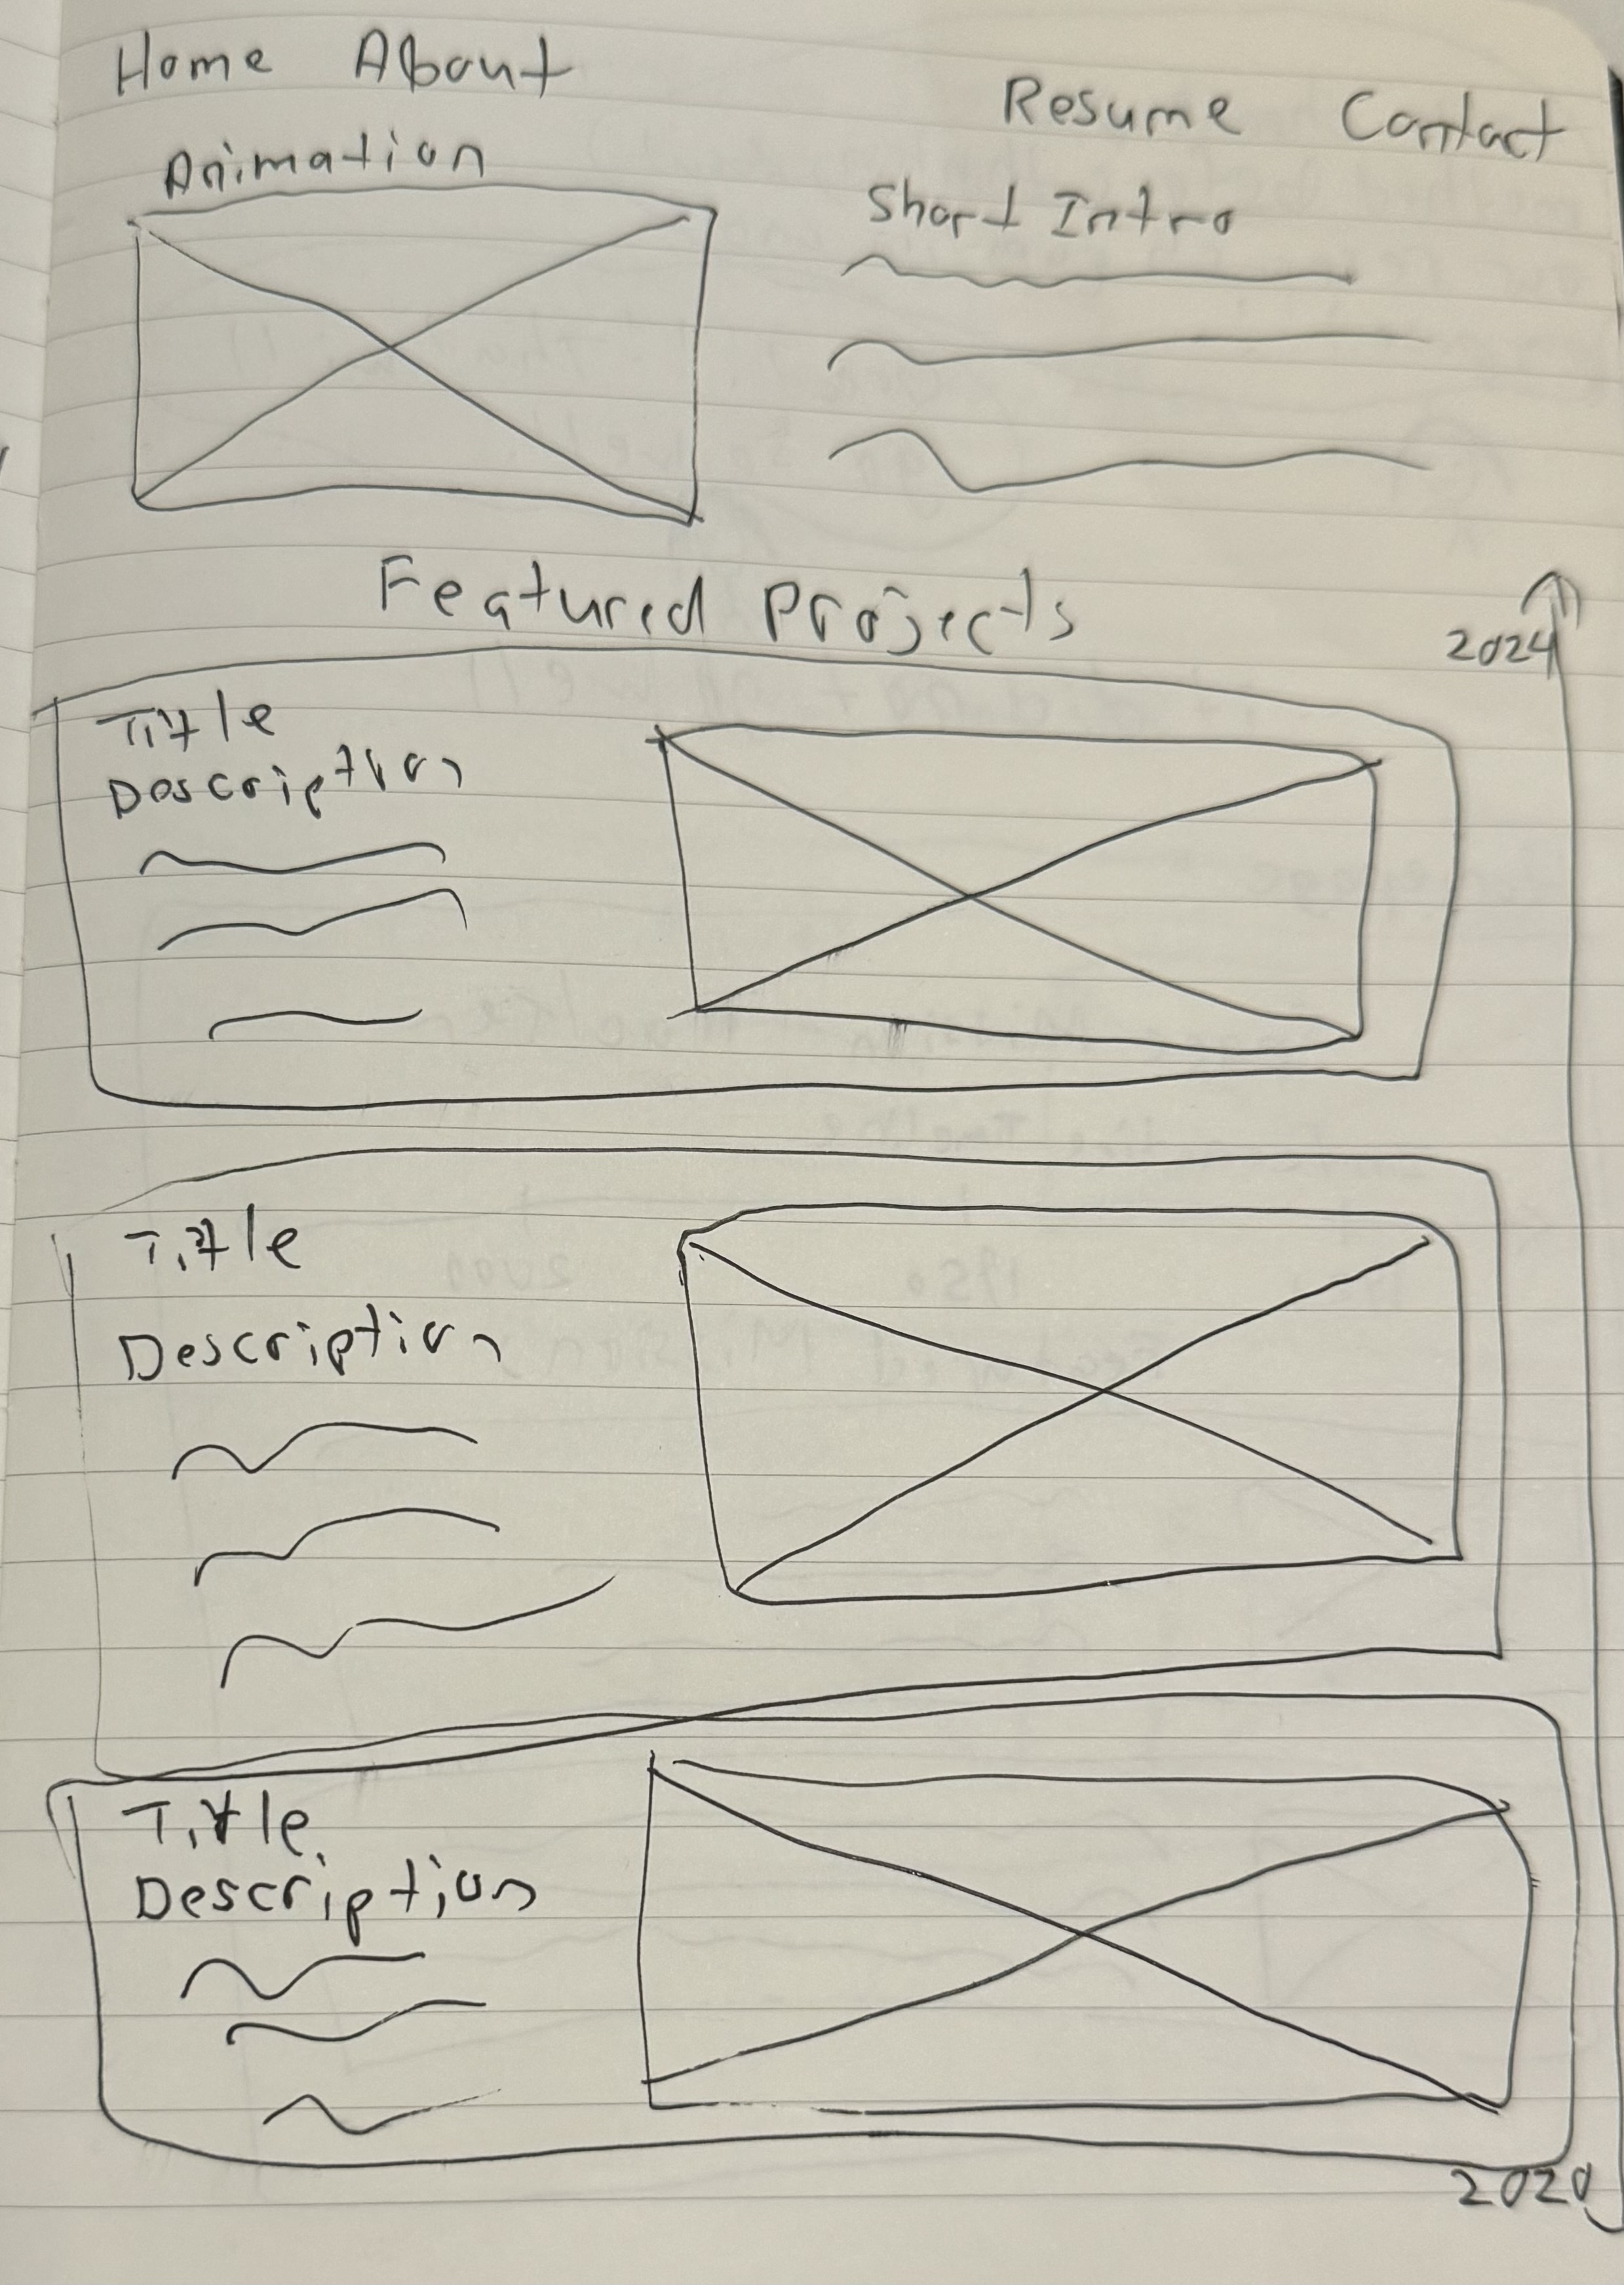 Home About Resume Contact
Animation Short Intro
Featured Projects
2024
Title
Description
Title
Description
Title
Description
2020